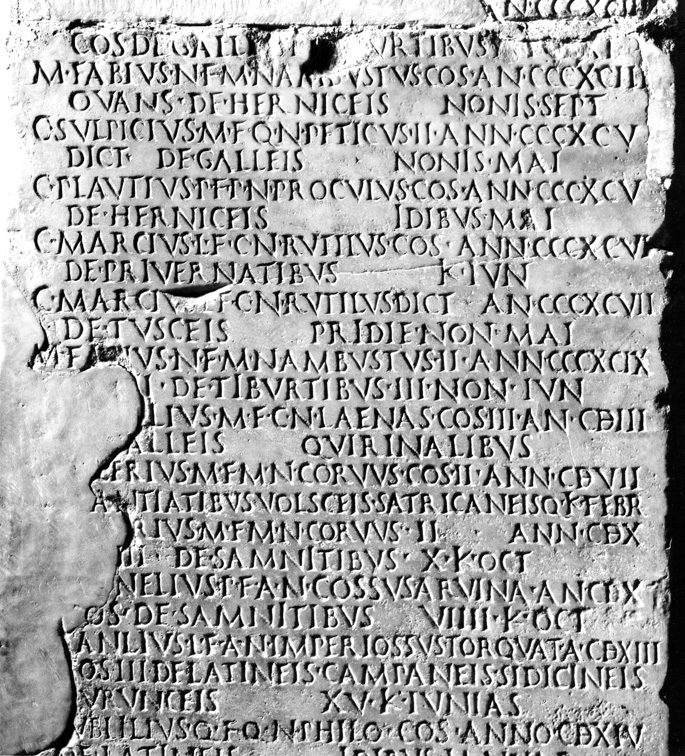 ANN·CCCXCIII
COS·DE·GALL URTIBUS
M·FABIVS·N·F·M·N·AMBVSTVS·COS·AN·CCCXCIII
OVANS·DE·HERNICEIS NONIS·SEPT
C·SVLPICIVS·M·F·Q·N·PETICVS·II·ANN·CCCXCV
DICT· DE·GALLEIS NONIS·MAI
C·PLAVTIVS·P·F·P·N·PROCVLVS·COS·ANN·CCCXCV
DE·HERNICEIS IDIBVS·MAI
C·MARCIVS·L·F·C·N·RVTILVS·COS·ANN·CCCXCVI
DE·PRIVERNATIBVS K·IVN
C·MARCIVS·L·F·C·N·RVTILVS·DICT AN·CCCXCVII
DE·TVSCEIS PRIDIE·NON·MAI
M·FABIVS·N·F·M·N·AMBVSTVS·II·ANN·CCCXCIX
I·DE·TIBVRTIBVS·III·NON·IVN
LIVS·M·F·C·N·LAENAS·COS·III·AN·CDIII
ALLEIS QVIRINALIBVS
LERIVS·M·F·M·N·CORVVS·COS·II·ANN·CDVII
ANTIATIBVS·VOLSCEIS·SATRICANEISQ·K·FEBR
RIVS·M·F·M·N·CORVVS·II· ANN·CDX
III DE·SAMNITIBVS·X·K·OCT
NELIVS·P·F·A·N·COSSVS·ARVINA·AN·CDX
OS·DE·SAMNITIBVS VIIII·K·OCT
ANLIVS·L·F·A·N·IMPERIOSSVS·TORQVAT·A·CDXIII
OS·III·DE·LATINEIS·CAMPANEIS·SIDICINEIS
VRVNCEIS XV·K·IVNIAS
VBLILIVS·Q·F·Q·N·PHILO·COS·ANNO·CDXIV
LATINEIS IDIBVS